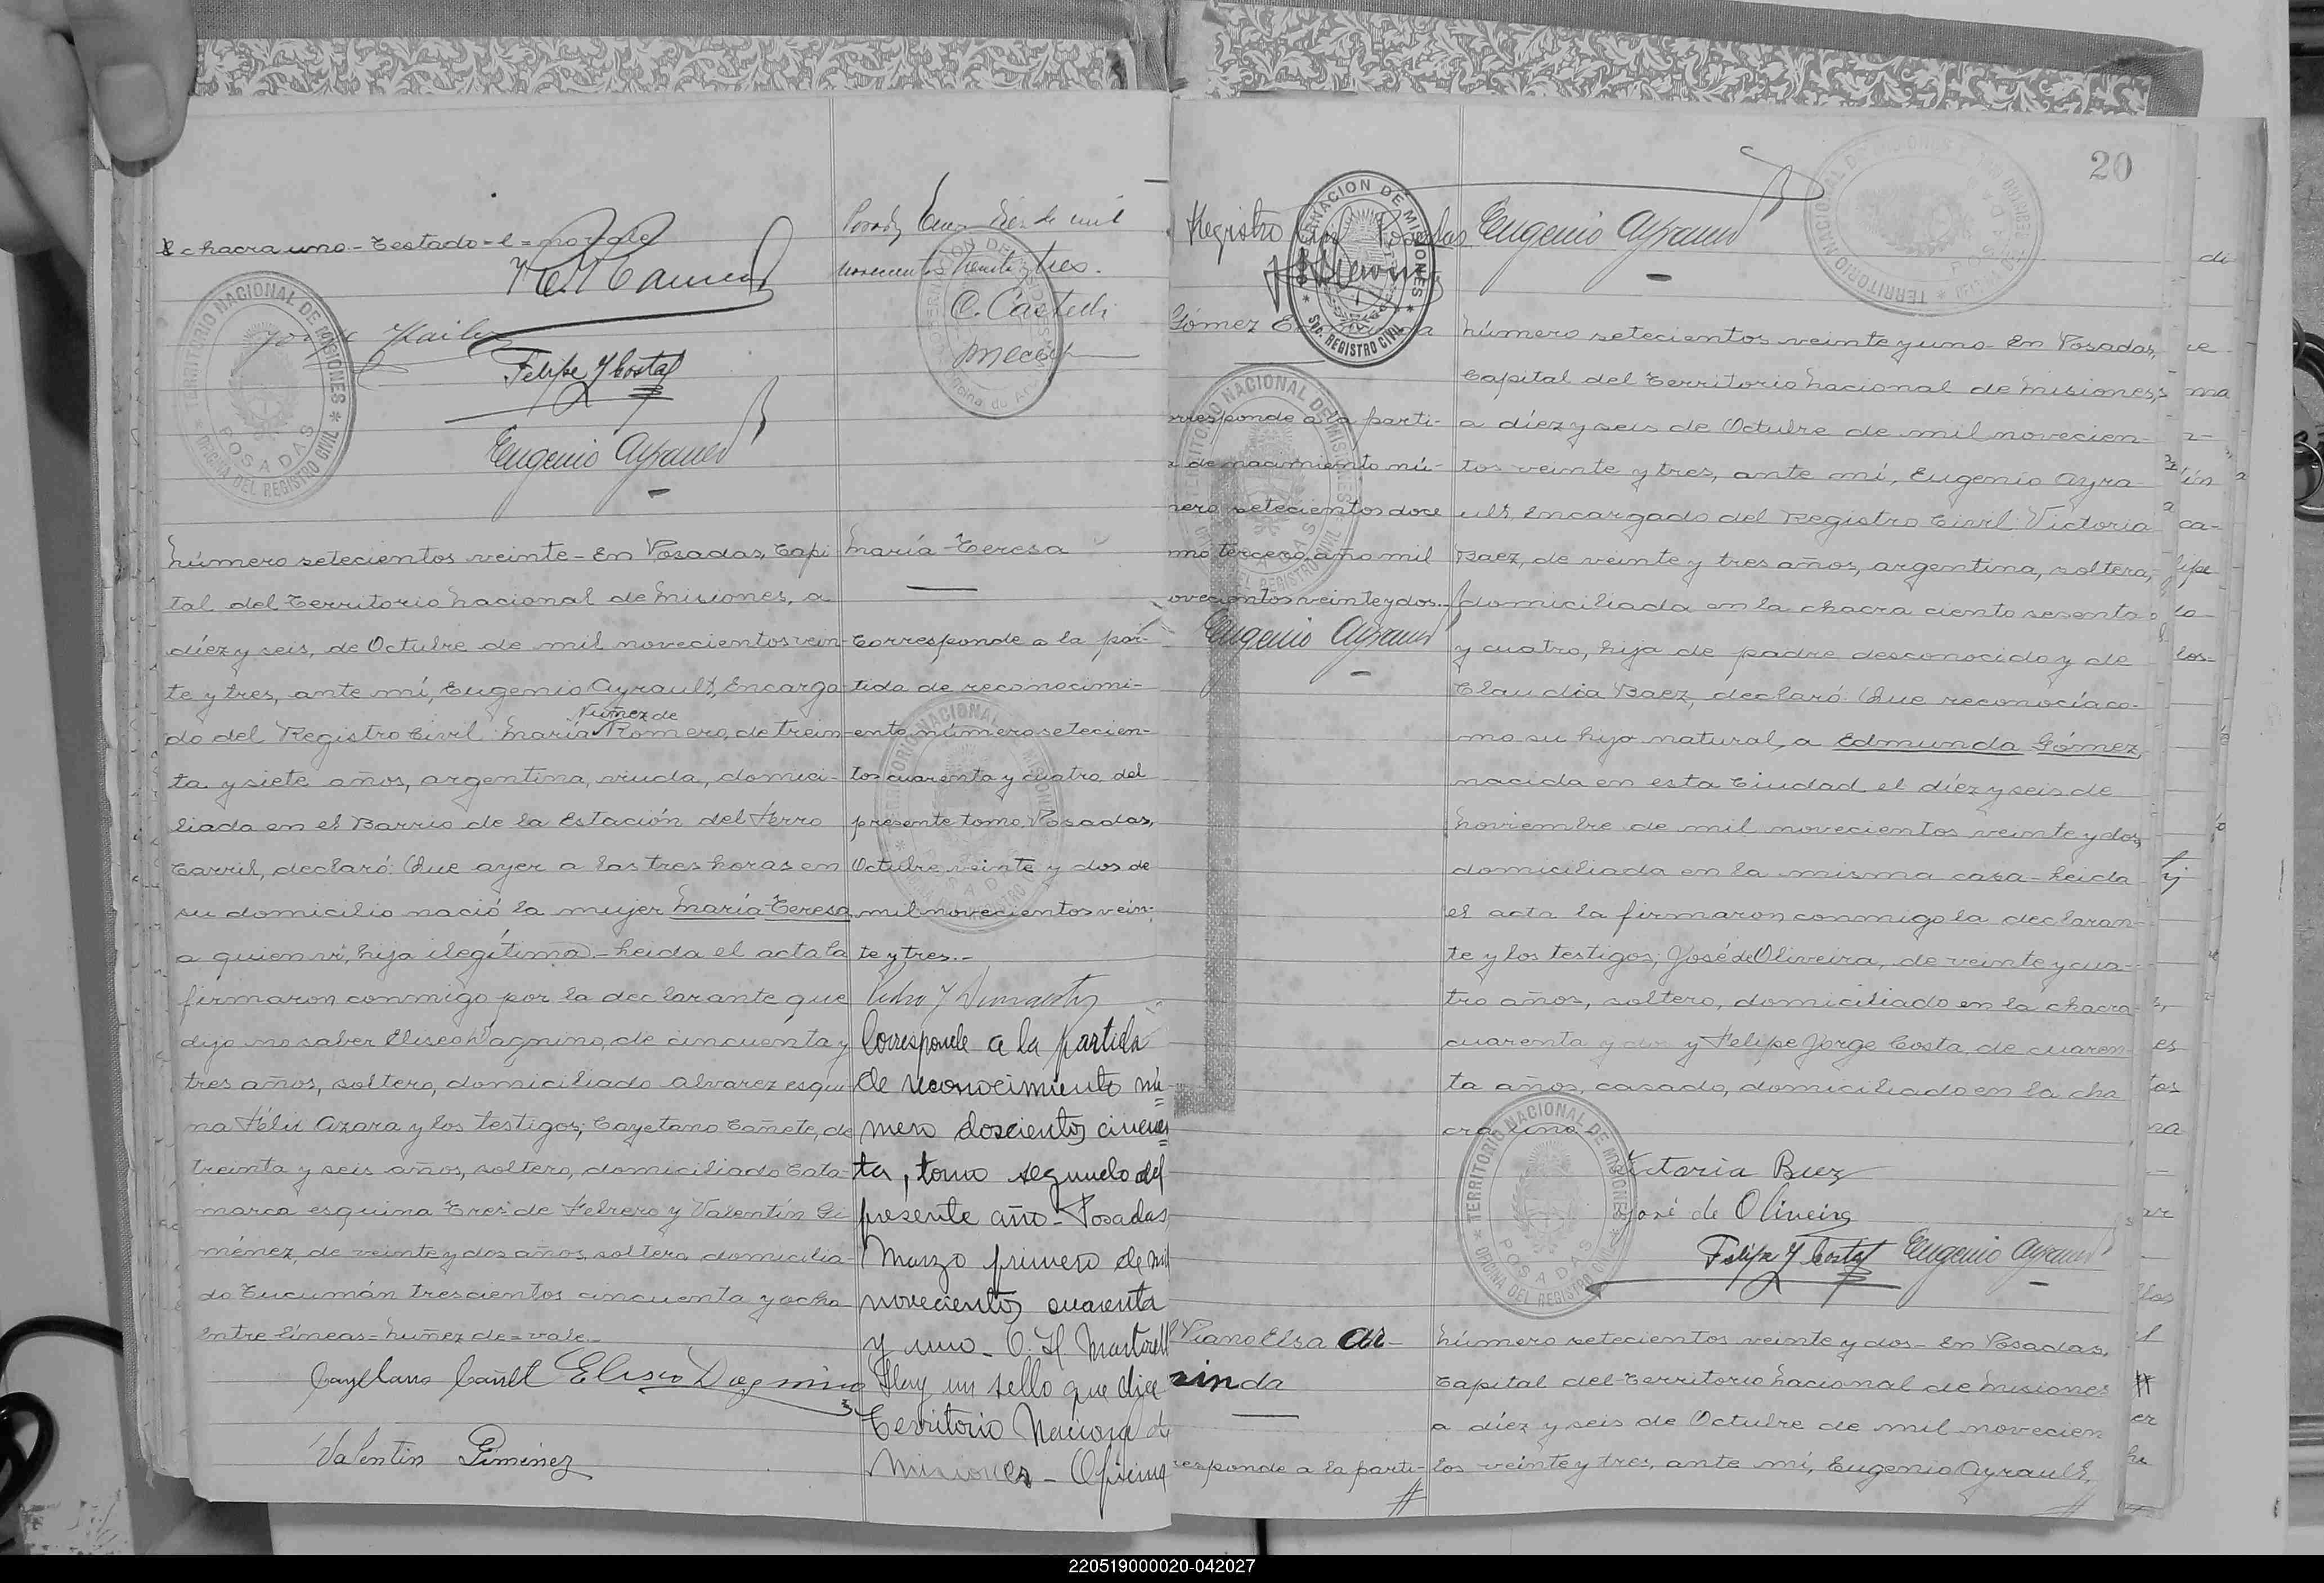 chacra uno - Testado - l = no vale
Jorge
Felipe J Costa
Eugenio Ayrault
TERRITORIO NACIONAL DE MISIONES
POSADAS
OFICINA DEL REGISTRO CIVIL
Número setecientos veinte - En Posadas, Capi
tal del Territorio Nacional de Misiones, a
diez y seis, de Octubre de mil novecientos vein-
te y tres, ante mí, Eugenio Ayrault, Encarga-
Nuñez de
do del Registro Civil: María Romero, de trein-
ta y siete años, argentina, viuda, domici-
liada en el Barrio de la Estación del Ferro
Carril, declaró: Que ayer a las tres horas en
su domicilio nació la mujer María Teresa
a quien vi, hija ilegítima - Leida el acta la
firmaron conmigo por la declarante que
dijo no saber Eliseo Dagnino, de cincuenta y
tres años, soltero, domiciliado Alvarez esqui-
na Félix Azara y los testigos; Cayetano Cañete, de
treinta y seis años, soltero, domiciliado Cata-
marca esquina Tres de Febrero y Valentín Gi
ménez, de veinte y dos años, soltero, domicilia-
do Tucumán trescientos cincuenta y ocho
Entre líneas = Nuñez de = vale.-
Cayetano Cañete Eliseo Dagnino
Valentin Gimenez
Posadas, Enero diez de mil
novecientos treinta y tres.
C. Castelli
María Teresa
Corresponde a la par-
tida de reconocimi-
ento número setecien-
tos cuarenta y cuatro, del
presente tomo, Posadas,
Octubre veinte y dos de
mil novecientos vein-
te y tres.-
Corresponde a la partida
de reconocimiento nú=
mero doscientos cincuen=
ta, tomo segundo del
presente año - Posadas
Marzo primero de mil
novecientos cuarenta
y uno - O. H. Martorell
Hay un sello que dice
Territorio Nacional de
Misiones - Oficina
20
Registro Civil Posadas
GOBERNACION DE MISIONES
Sec. REGISTRO CIVIL
Gómez
rresponde a la parti-
a de nacimiento nú-
mero setecientos doce
mo tercero, año mil
ovecientos veinte y dos.-
Eugenio Ayrault
Eugenio Ayrault
TERRITORIO NACIONAL DE MISIONES
Número setecientos veinte y uno - En Posadas,
Capital del Territorio Nacional de Misiones,
a diez y seis de Octubre de mil novecien-
tos veinte y tres, ante mí, Eugenio Ayra-
ult, Encargado del Registro Civil: Victoria
Baez, de veinte y tres años, argentina, soltera,
domiciliada en la chacra ciento sesenta
y cuatro, hija de padre desconocido y de
Claudia Baez, declaró: Que reconocía co-
mo su hija natural, a Edmunda Gómez,
nacida en esta Ciudad el diez y seis de
Noviembre de mil novecientos veinte y dos,
domiciliada en la misma casa - Leida
el acta la firmaron conmigo la declaran-
te y los testigos; José de Oliveira, de veinte y cua-
tro años, soltero, domiciliado en la chacra
cuarenta y dos y Felipe Jorge Costa, de cuaren-
ta años, casado, domiciliado en la cha
cra uno
Victoria Baez
José de Oliveira
Felipe J Costa Eugenio Ayrault
TERRITORIO NACIONAL DE MISIONES
POSADAS
OFICINA DEL REGISTRO CIVIL
Viano Elsa Cla-
rinda
responde a la parti-
Número setecientos veinte y dos - En Posadas,
Capital del Territorio Nacional de Misiones
a diez y seis de Octubre de mil novecien
tos veinte y tres, ante mí, Eugenio Ayrault,
220519000020-042027